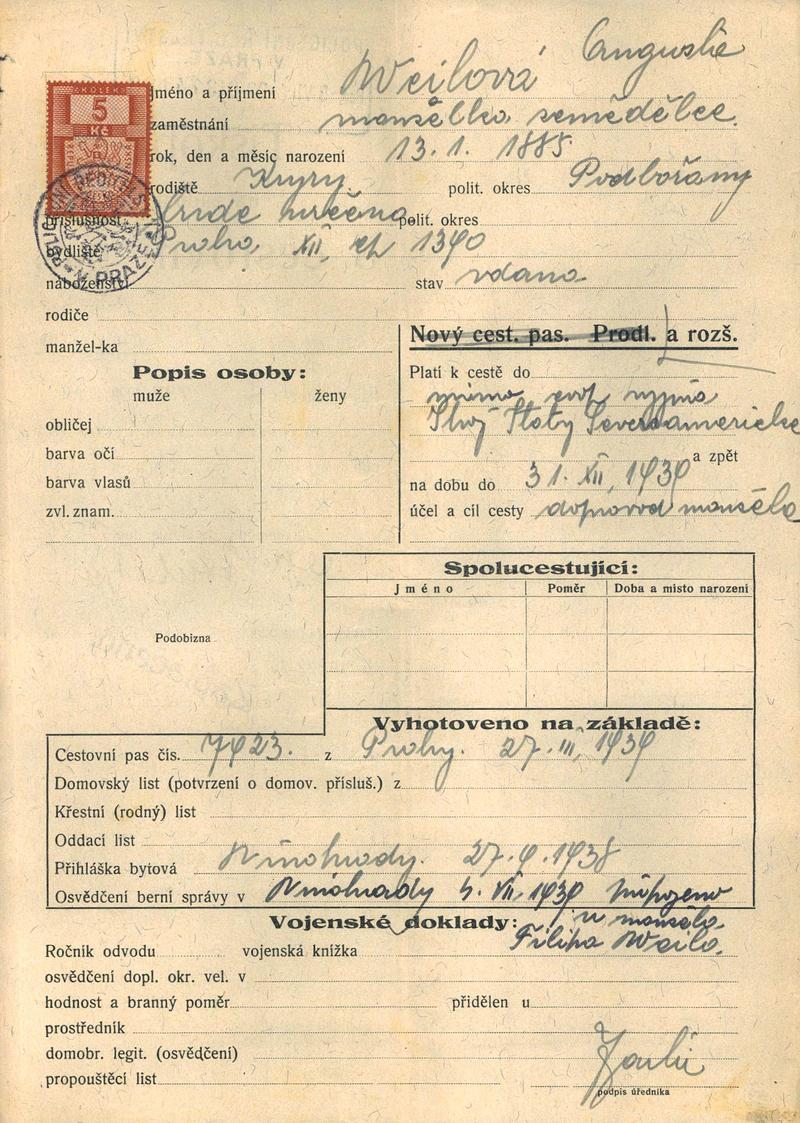 Weilová Augustie
KOLEK
5
Kč
jméno a příjmení
zaměstnání manželka zemědělce.
rok, den a měsíc narození 13.1. 1885.
rodiště Kryry polit. okres Podbořany
příslušnost polit. okres
bydliště Praha XII, čp 1390
náboženství stav vdaná
rodiče
manžel-ka
Nový cest. pas. Prodl. a rozš.
Popis osoby:
muže ženy
obličej
barva očí
barva vlasů
zvl. znam.
Platí k cestě do
mimo evr. vyjma
Spoj Státy Severoamerické
a zpět
na dobu do 31. XII, 1939
účel a cíl cesty doprovod manžela
Spolucestující:
Jméno Poměr Doba a místo narození
Podobizna
Vyhotoveno na základě:
Cestovní pas čís. 7923. z Prahy. 27. III, 1939
Domovský list (potvrzení o domov. přísluš.) z
Křestní (rodný) list
Oddací list
Přihláška bytová Vinohrady. 27.9.1938
Osvědčení berní správy v Vinohrady 4. VII, 1939 připojeno
u manžela
Filipa Weila.
Vojenské doklady:
Ročník odvodu vojenská knížka
osvědčení dopl. okr. vel. v
hodnost a branný poměr přidělen u
prostředník
domobr. legit. (osvědčení)
propouštěcí list
podpis úředníka